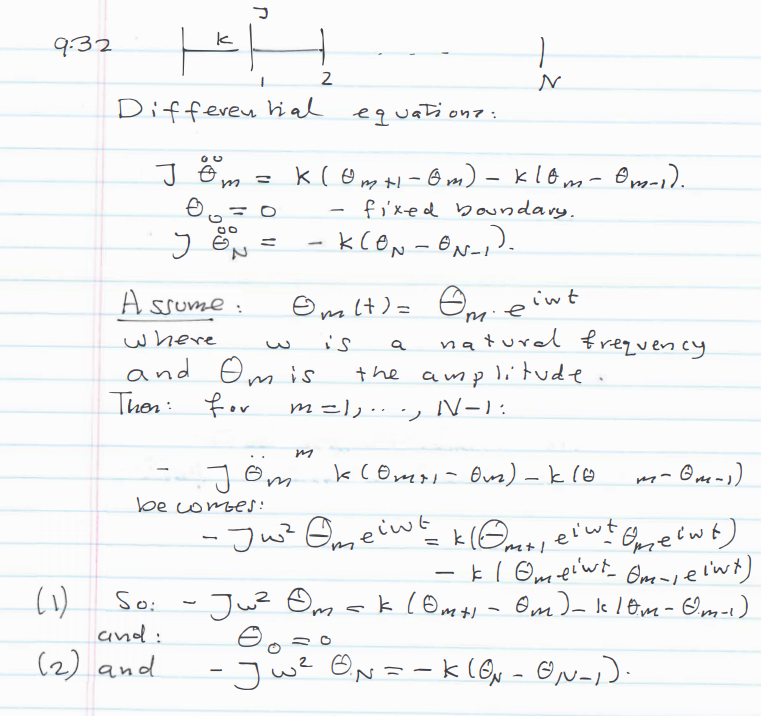 9.32 K J 1 2 - - - N
Differential equations:
J θ̈m = K(θm+1 - θm) - K(θm - θm-1).
θ0 = 0 - fixed boundary.
J θ̈N = - K(θN - θN-1).
Assume: θm(t) = Θm · e^iwt
where w is a natural frequency
and Θm is the amplitude.
Then: for m = 1, ..., N-1:
- J θ̈m m k(θm+1 - θm) - k(θ m - θm-1)
becomes:
- Jw² Θm e^iwt = k(Θm+1 e^iwt - Θm e^iwt)
- k(Θm e^iwt - Θm-1 e^iwt)
(1) So: - Jw² Θm = k(Θm+1 - Θm) - k(Θm - Θm-1)
and: Θ0 = 0
(2) and - Jω² ΘN = - k(ΘN - ΘN-1).